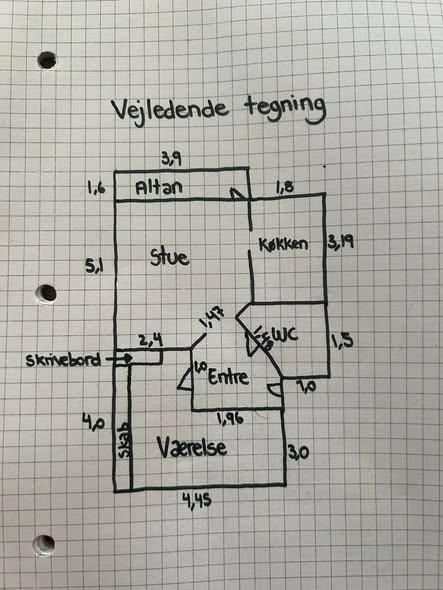 Vejledende tegning
3,9
1,6
Altan
1,8
5,1
Stue
Køkken
3,19
1,47
2,4
WC
1,5
skrivebord
1,0
Entre
1,0
1,96
4,0
skab
Værelse
3,0
4,45